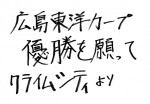 広島東洋カープ
優勝を願って
クライムシティより